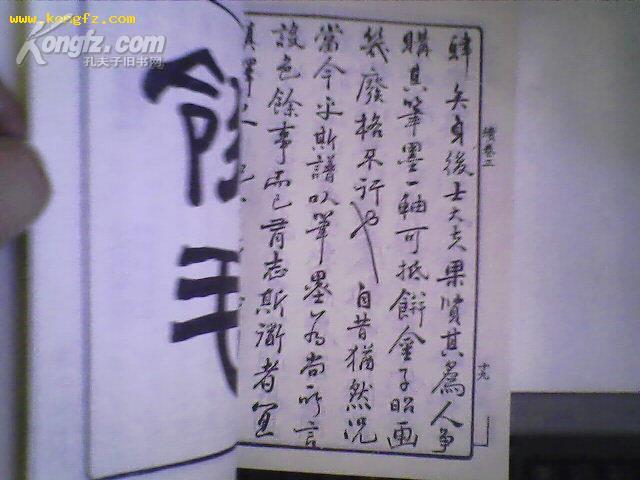 www.kongfz.com
Kongfz.com
孔夫子旧书网
續卷三
十九
肆矣身後士大夫果賢其為人爭
購其筆墨一軸可抵餅金子昭画
裝廢格不行乃自昔猶然況
當今乎斯譜以筆墨為尚所言
設色餘事而已有志斯術者宜
毛